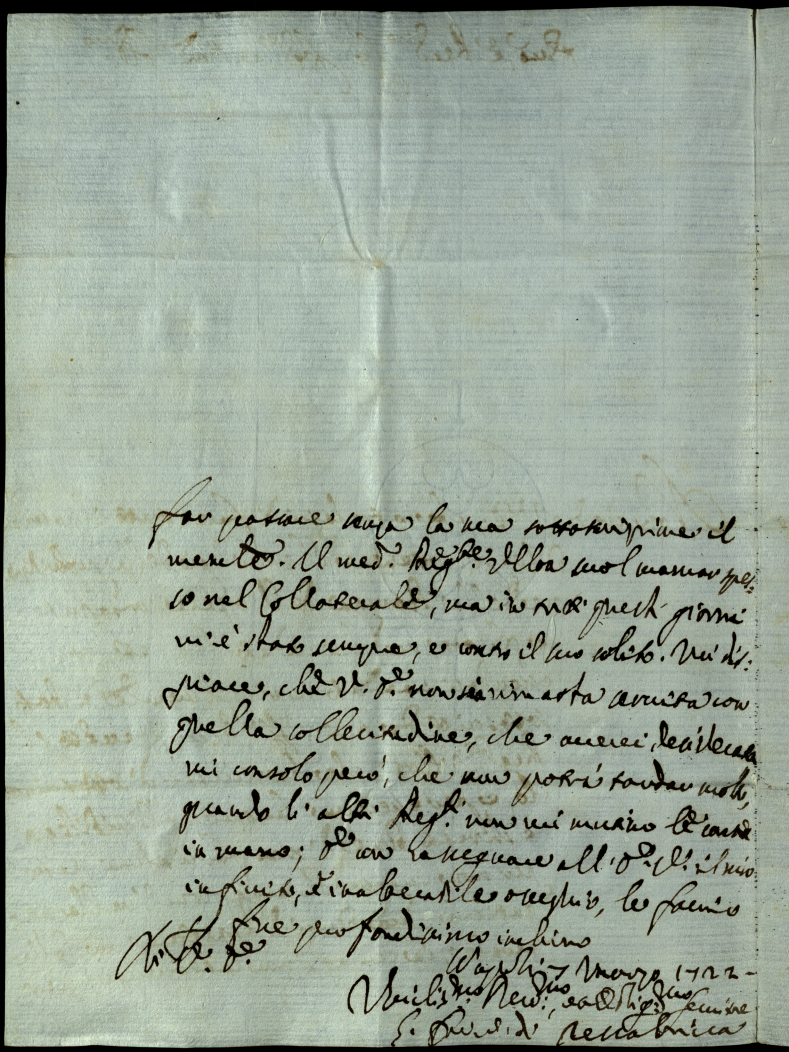 far passare senza la sua sottoscrizione il
mentre. Il med.º Regg.te Ulloa suol mancar spes-
so nel Collaterale, ma in tutti questi giorni
vi è stato sempre, e contro il suo solito. Mi dis-
piace, che V. E. non sia rimasta servita con
quella sollecitudine, che averei desiderata
mi consolo però, che non potrà tardar molto,
quando li altri Regg.ti non mi mutino le carte
in mano; Ed con rassegnare all' E. V. il mio
infinito, ed inalterabile ossequio, le faccio
profondissimo inchino
Di V. E.
Napoli 7 Marzo 1722
Umiliss.mo Rev.mo, ed Oblig.mo Servitore